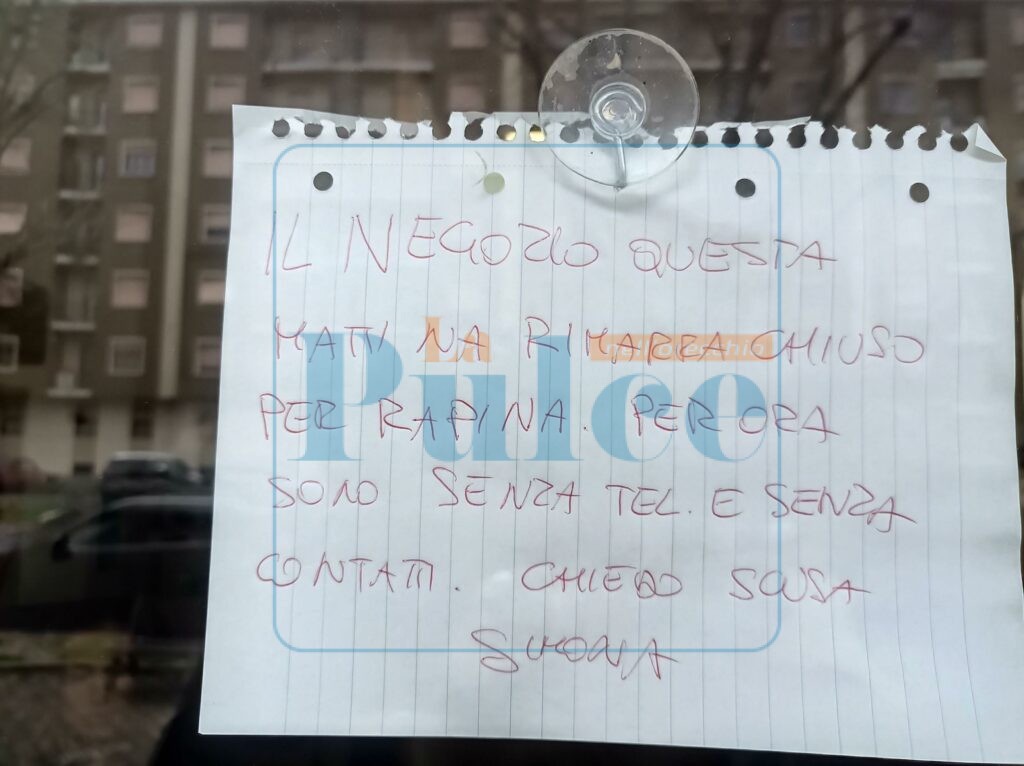 IL NEGOZIO QUESTA
MATTINA RIMARRA CHIUSO
PER RAPINA. PER ORA
SONO SENZA TEL. E SENZA
CONTATTI. CHIEDO SCUSA
SIMONA
La
Pulce